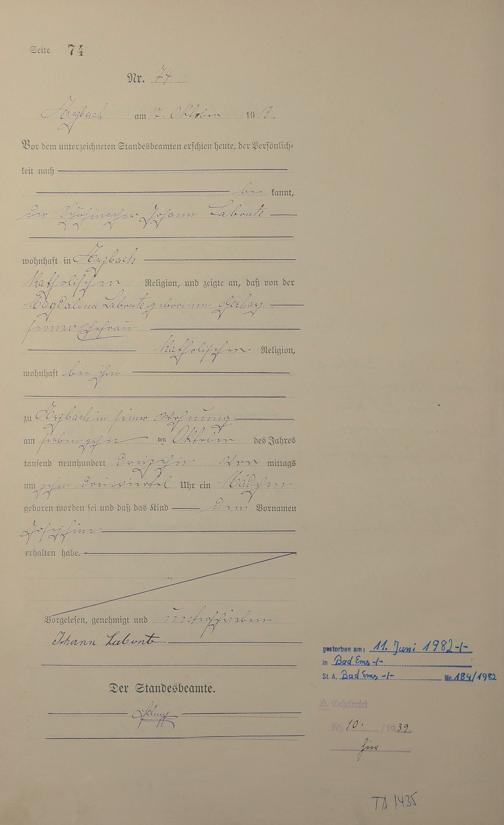 Seite 74
Nr. 74
Arzbach am 17. Oktober 1913.
Vor dem unterzeichneten Standesbeamten erschien heute, der Persönlich-
keit nach
be kannt,
der Johann Labonte
wohnhaft in Arzbach
katholischen Religion, und zeigte an, daß von der
Magdalena Labonte geborenen
seiner Ehefrau
katholischen Religion,
wohnhaft bei ihm
zu Arzbach in seiner Wohnung
am siebenzehn ten Oktober des Jahres
tausend neunhundert dreizehn Vor mittags
um zehn dreiviertel Uhr ein Mädchen
geboren worden sei und daß das Kind den Vornamen
Josephine
erhalten habe.
Vorgelesen, genehmigt und unterschrieben
Johann Labonte
Der Standesbeamte.
gestorben am: 11. Juni 1982 -/-
in Bad Ems -/-
St. A. Bad Ems -/- Nr. 184/1982
Nr. 10. /1939
TB 1435